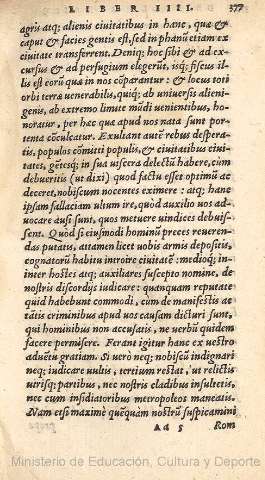 LIBER IIII. 377
agris atq; alienis ciuitatibus in hanc, quæ &
caput & facies gentis est, sed in phanū etiam ex
ciuitate transferrent. Deniq; hoc sibi & ad ex-
cursus & ad perfugium elegerūt, isq; fiscus il-
lis est eorū quæ in nos cōparantur: & locus toti
orbi terræ venerabilis, quiq; ab uniuersis alieni-
genis, ab extremo limite mūdi uenientibus, ho-
noratur, per hac que apud nos nata sunt por-
tenta cōculcatur. Exultant autē rebus despera-
tis, populos cōmitti populis, & ciuitatibus ciui-
tates, gētesq; in sua uiscera delectū habere, cùm
debueritis (ut dixi) quod factu esset optimū ac
deceret, nobiscum nocentes eximere: atq; hanc
ipsam fallaciam ultum ire, quòd auxilio vos ad-
vocare ausi sunt, quos metuere vindices debuis-
sent. Quòd si eiusmodi hominū preces reueren-
das putatis, attamen licet uobis armis depositis,
cognatorū habitu introire ciuitatē: medioq; in-
inter hostes atq; auxiliares suscepto nomine, de
nostris discordijs iudicare: quanquam reputate
quid habebunt commodi, cùm de manifestis ac
tātis criminibus apud uos causam dicturi sunt,
qui hominibus non accusatis, ne verbū quidem
facere permisere. Ferant igitur hanc ex uestro
aduētu gratiam. Si uero neq; nobiscū indignari
neq; iudicare uultis, tertium restat, ut relictis
utrisq; partibus, nec nostris cladibus insultetis,
nec cum insidiatoribus metropoleos maneatis.
Nam etsi maximè quēquam nostrū suspicamini
Ad 5 Rom
Ministerio de Educación, Cultura y Deporte